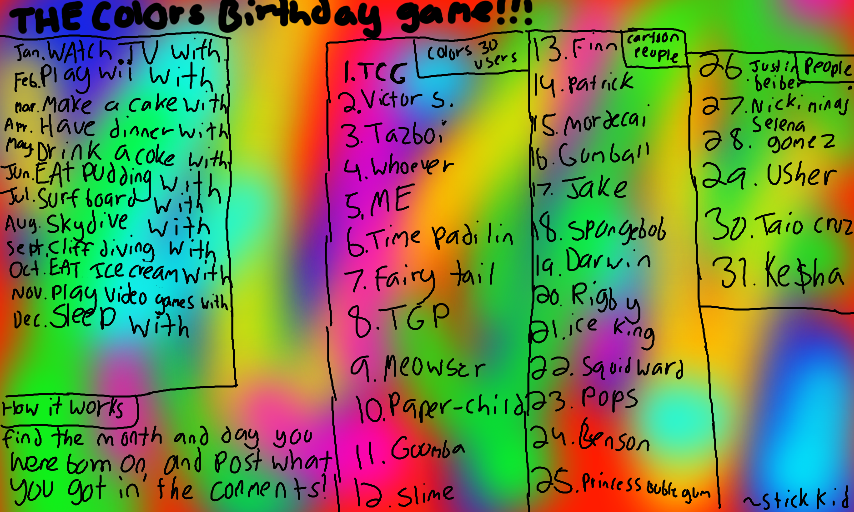 THE Colors Birthday game!!!
Jan. WAtch TV with
Feb. Play wii with
Mar. Make a cake with
Apr. Have dinner with
May Drink a coke with
Jun. EAt pudding with
Jul. Surf board with
Aug. Skydive with
Sept. Cliff diving with
Oct. EAT Ice cream with
Nov. Play video games with
Dec. Sleep with
How it works
find the month and day you
were born on and post what
you got in the comments!
colors 3D
users
1. TCG
2. Victor s.
3. Tazboi
4. Whoever
5. ME
6. Time padilin
7. Fairy tail
8. TGP
9. Meowszr
10. Paper-child
11. Goomba
12. Slime
cartoon
people
13. Finn
14. Patrick
15. Mordecai
16. Gumball
17. Jake
18. Spongebob
19. Darwin
20. Rigby
21. ice king
22. Squidward
23. Pops
24. Benson
25. Princess Bubblegum
People
26. Justin
beiber
27. Nicki minaj
28. Selena
gomez
29. Usher
30. Taio cruz
31. Ke$ha
~stick kid